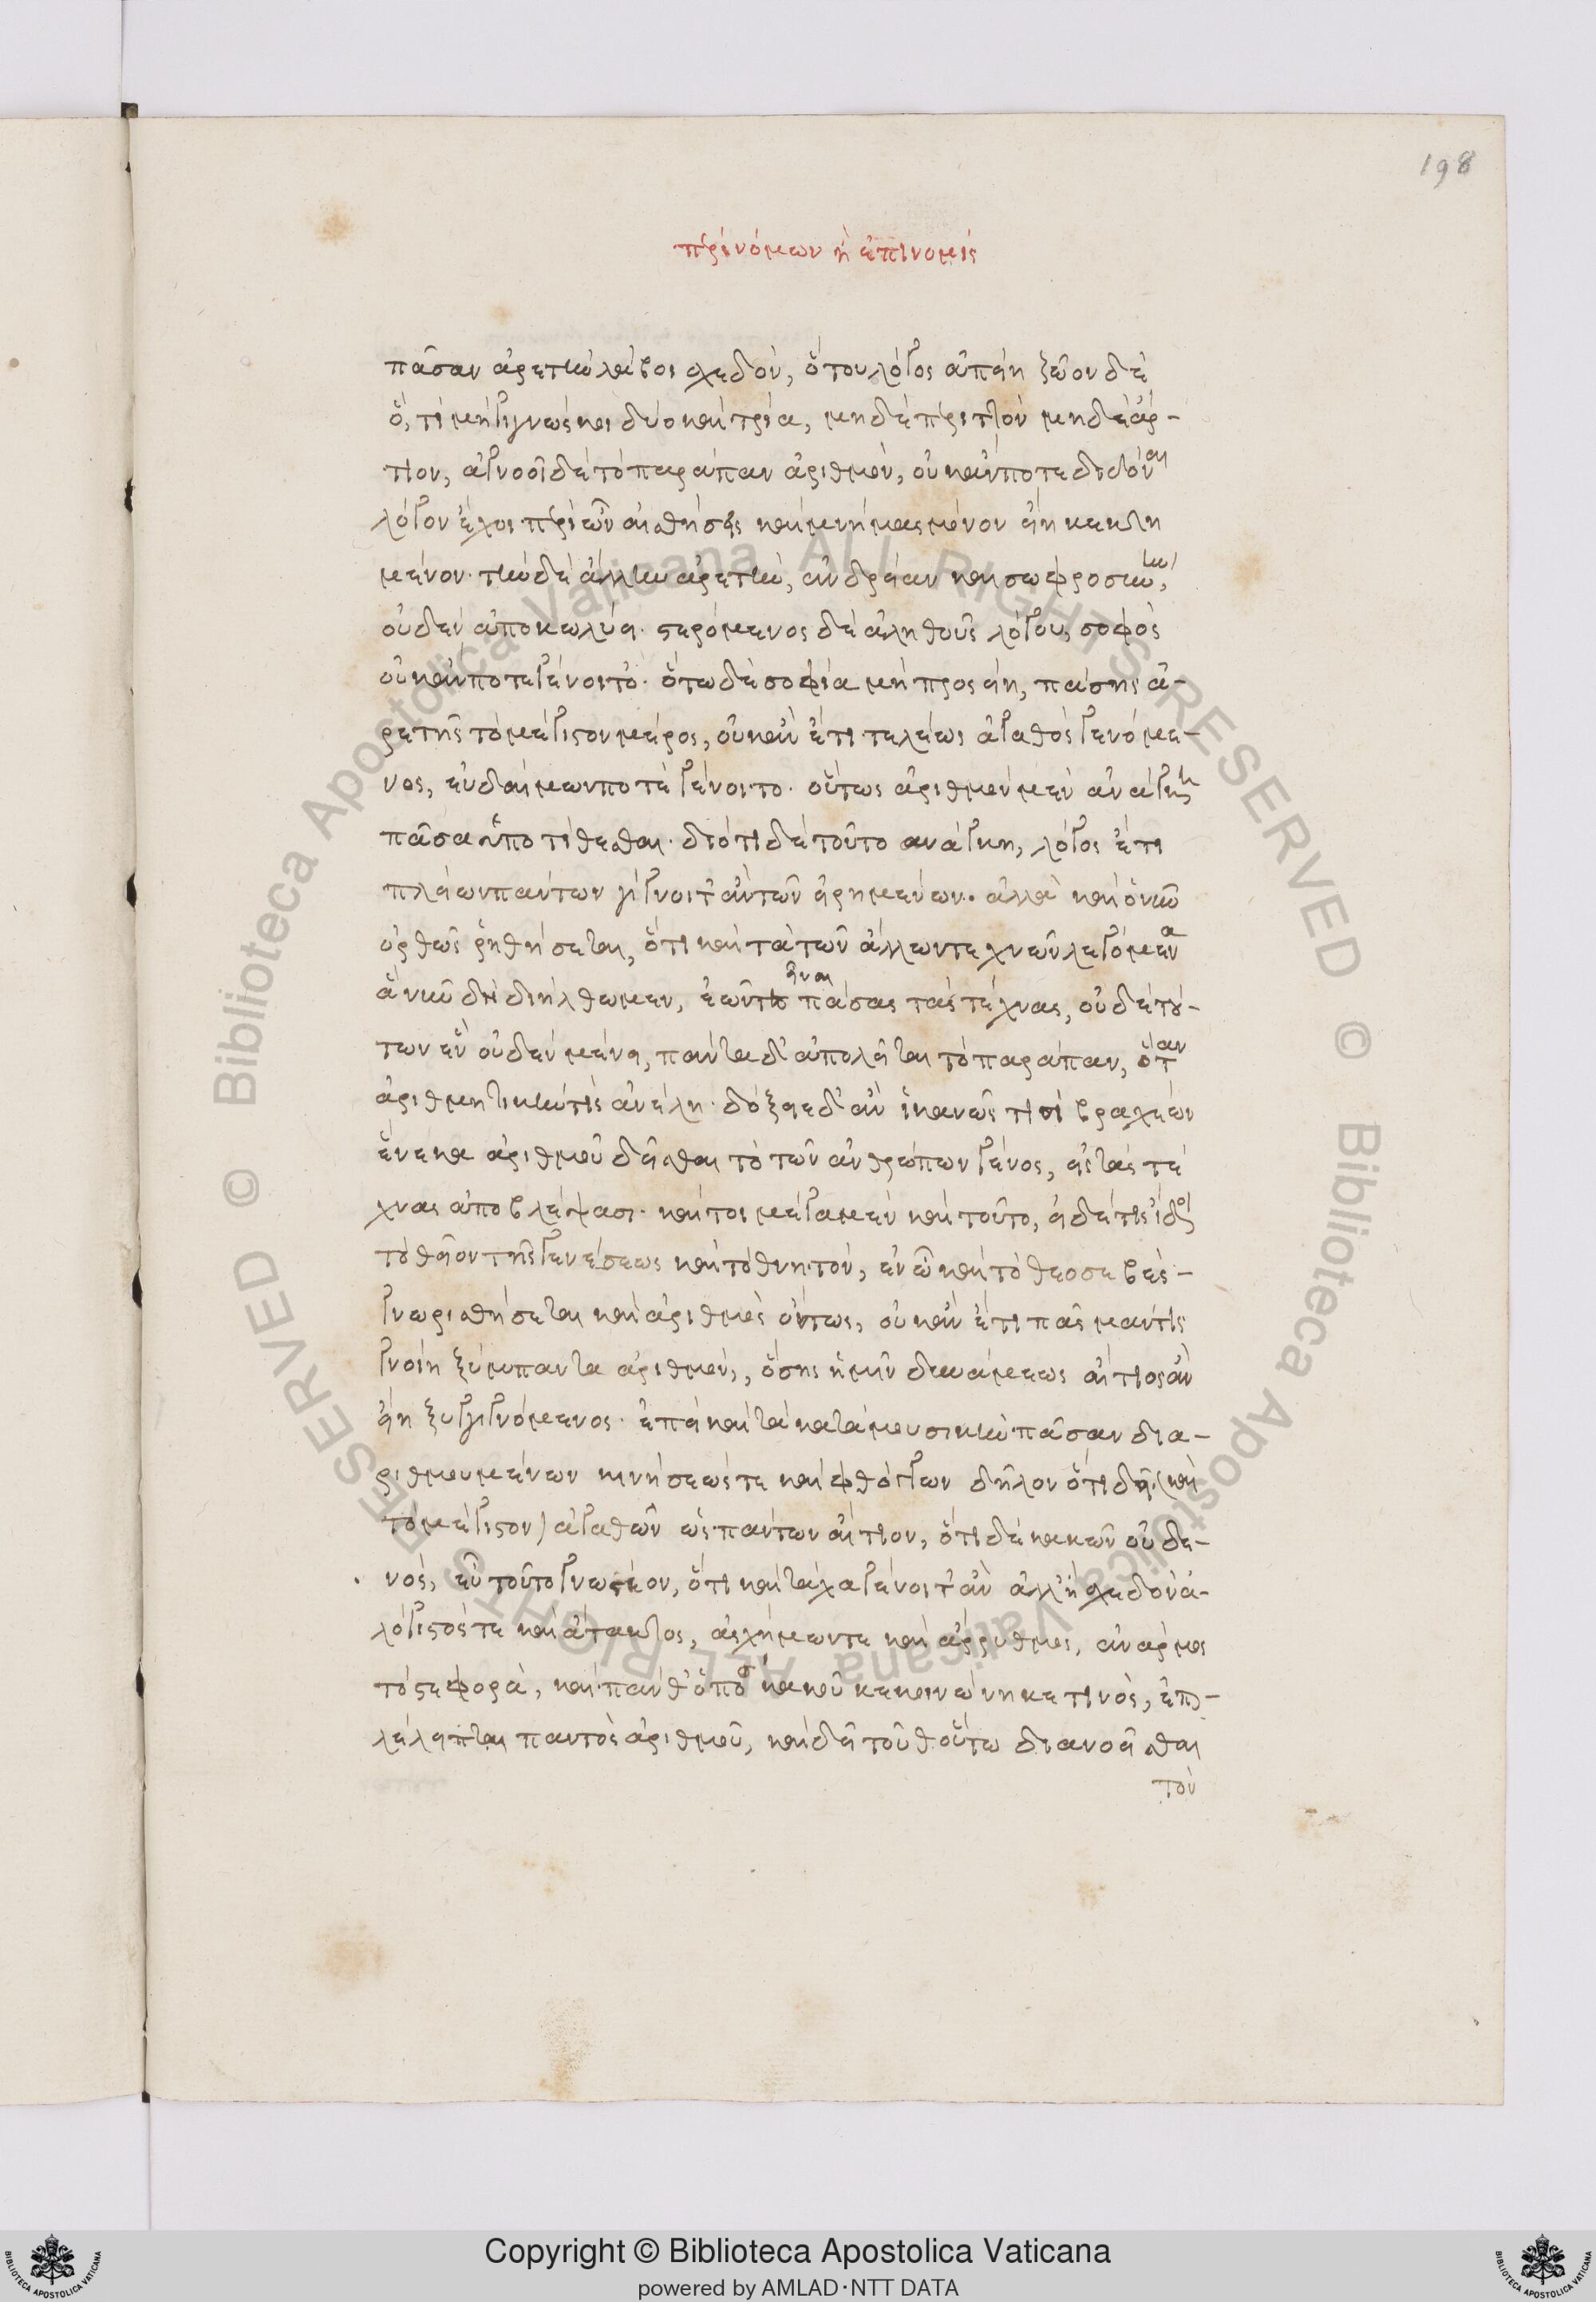 198
περὶ νόμων ἢ ἐπινομίς
πᾶσαν ἀρετὴν λάβοι σχεδόν, ὅτου λόγος ἀπείη ζῶον δὲ
ὅ,τι μὴ γιγνώσκοι δύο καὶ τρία, μηδὲ περιττὸν μηδὲ ἄρ-
τιον, ἀγνοοῖ δὲ τὸ παράπαν ἀριθμόν, οὐκ ἄν ποτε διδόναι
λόγον ἔχοι περὶ ὧν αἰσθήσεις καὶ μνήμας μόνον εἴη κεκτη
μένον· τὴν δὲ ἄλλην ἀρετήν, ἀνδρείαν καὶ σωφροσύνην,
οὐδὲν ἀποκωλύει· στερόμενος δὲ ἀληθοῦς λόγου, σοφὸς
οὐκ ἄν ποτε γένοιτο· ὅτω δὲ σοφία μὴ προσείη, πάσης ἀ-
ρετῆς τὸ μέγιστον μέρος, οὐκ ἂν ἔτι τελέως ἀγαθὸς γενόμε-
νος, εὐδαίμων ποτὲ γένοιτο· οὕτως ἀριθμὸν μὲν ἀνάγκη
πᾶσα ὑποτίθεσθαι· διότι δὲ τοῦτο ἀνάγκη, λόγος ἔτι
πλείων πάντων γίγνοιτ' ἂν τῶν εἰρημένων· ἀλλὰ καὶ ὁ νῦν
ὀρθῶς ῥηθήσεται, ὅτι καὶ τὰ τῶν ἄλλων τεχνῶν λεγόμενα
ἃ νῦν δὴ διήλθομεν, ἐῶντες εἶναι πάσας τὰς τέχνας, οὐδὲ τού-
των ἓν οὐδὲν μένει, πάντα δ' ἀπολεῖται τὸ παράπαν, ὅταν
ἀριθμητικὴν τὶς ἀνέλη· δόξειε δ' ἂν ἱκανῶς τισὶ βραχέων
ἕνεκα ἀριθμοῦ δεῖσθαι τὸ τῶν ἀνθρώπων γένος, εἰς τὰς τέ
χνας ἀποβλέψασι· καίτοι μέγα μὲν καὶ τοῦτο, εἰ δέ τις ἴδοι
τὸ θεῖον τῆς γενέσεως καὶ τὸ θνητόν, ἐν ᾧ καὶ τὸ θεοσεβὲς-
γνωρισθήσεται καὶ ἀριθμὸς ὄντως, οὐκ ἂν ἔτι πᾶς μάντις
γνοίη ξύμπαντα ἀριθμόν, ὅσης ἡμῖν δυνάμεως αἴτιος ἂν
εἴη ξυγγιγνόμενος· ἐπεὶ καὶ τὰ κατὰ μουσικὴν πᾶσαν δια-
ριθμουμένων κινήσεώς τε καὶ φθόγγων δῆλον ὅτι δεῖ (καὶ
τὸ μέγιστον) ἀγαθῶν ὡς πάντων αἴτιον, ὅτι δὲ κακῶν οὐδε-
νός, εὖ τοῦτο γνωστέον, ὅτι καὶ τάχα γένοιτ' ἂν ἀλλ' ἡ σχεδὸν ἀ-
λόγιστός τε καὶ ἄτακτος, ἀσχήμων τε καὶ ἄρρυθμος, ἀναρμο
τός τε φορὰ, καὶ πάνθ' ὁπόσα κακοῦ κεκοινώνηκε τινὸς, ἐπι-
λέλειπται παντὸς ἀριθμοῦ, καὶ δεῖ τοῦθ' οὕτω διανοεῖσθαι
τὸν
Copyright © Biblioteca Apostolica Vaticana
powered by AMLAD·NTT DATA
© Biblioteca Apostolica Vaticana ALL RIGHTS RESERVED © Biblioteca Apostolica Vaticana ALL RIGHTS RESERVED
BIBLIOTECA APOSTOLICA VATICANA
BIBLIOTECA APOSTOLICA VATICANA